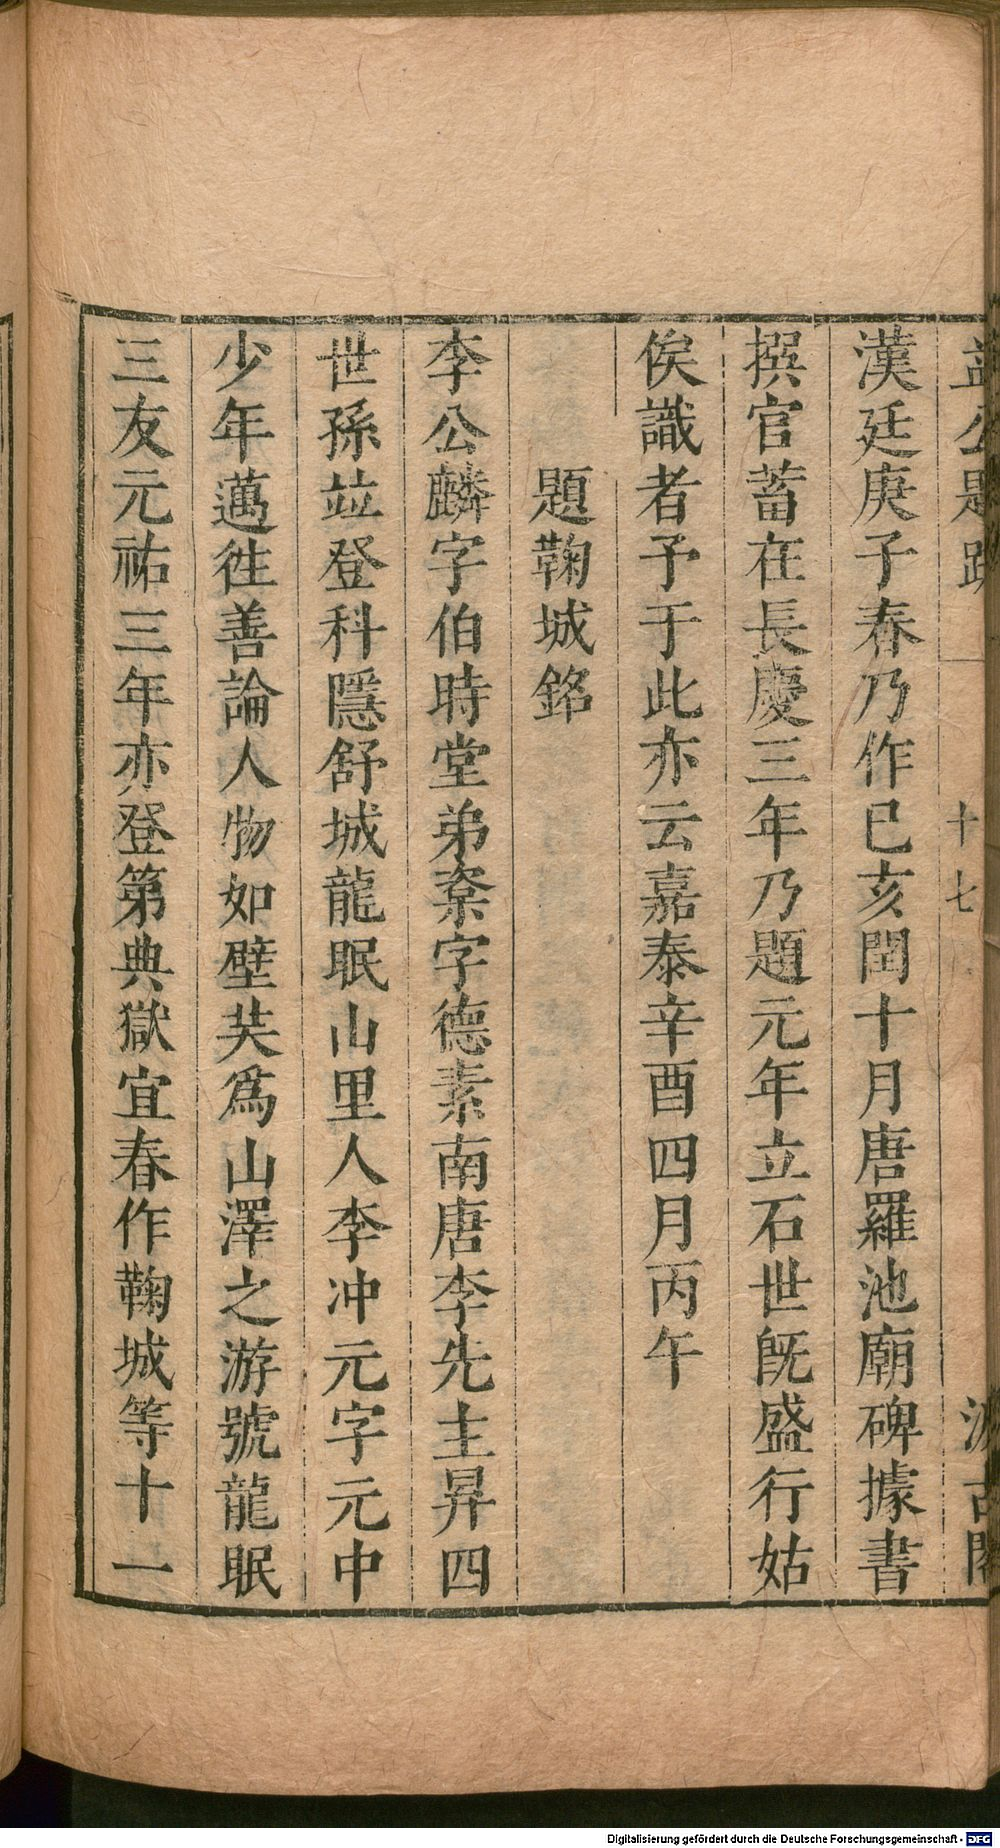 益公題跋
十七
汲古閣
漢廷庚子春乃作已亥閏十月唐羅池廟碑據書
撰官蓄在長慶三年乃題元年立石世旣盛行姑
俟識者予于此亦云嘉泰辛酉四月丙午
題鞠城銘
李公麟字伯時堂弟楶字德素南唐李先主昇四
世孫竝登科隱舒城龍眠山里人李冲元字元中
少年邁徃善論人物如壁英爲山澤之游號龍眠
三友元祐三年亦登第典獄宜春作鞠城等十一
Digitalisierung gefördert durch die Deutsche Forschungsgemeinschaft - DFG